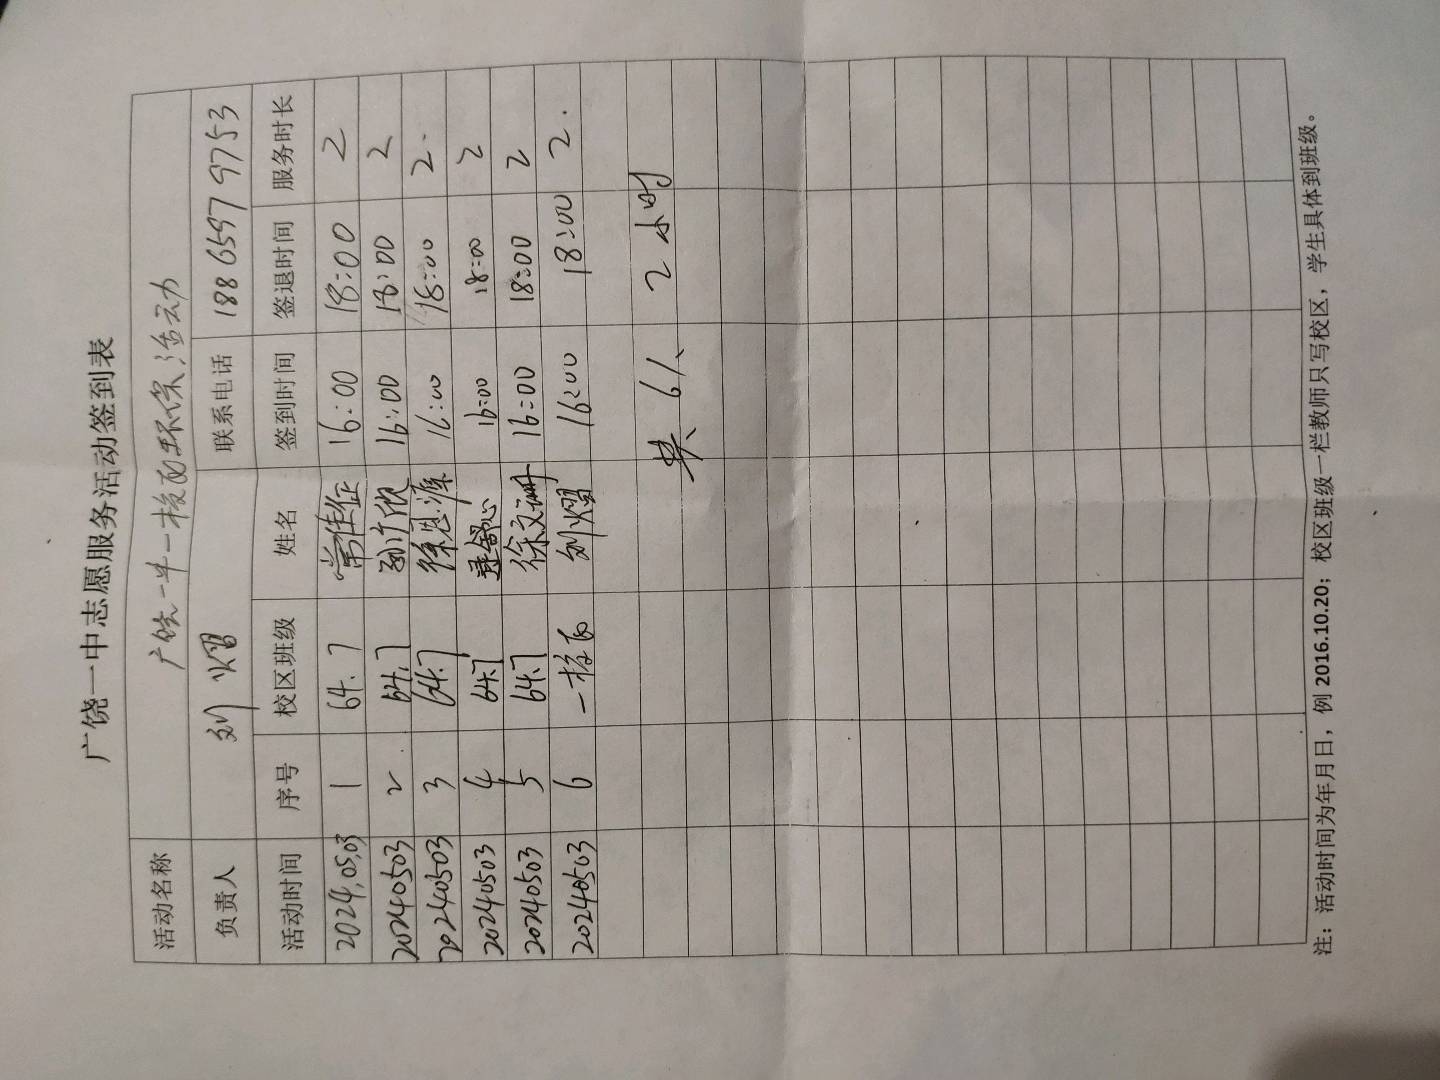 广饶一中志愿服务活动签到表
活动名称 广饶一中一校西环保活动
负责人 刘熠 联系电话 188 6597 9753
活动时间 序号 校区班级 姓名 签到时间 签退时间 服务时长
2024.05.03 1 64.7 常佳征 16:00 18:00 2
20240503 2 64.7 16:00 18:00 2
20240503 3 64.7 16:00 18:00 2.
20240503 4 64.7 舒心 16:00 18:00 2
20240503 5 64.7 徐文珊 16:00 18:00 2
20240503 6 一校区 刘熠 16:00 18:00 2.
共 6人 2小时
注：活动时间为年月日，例 2016.10.20；校区班级一栏教师只写校区，学生具体到班级。